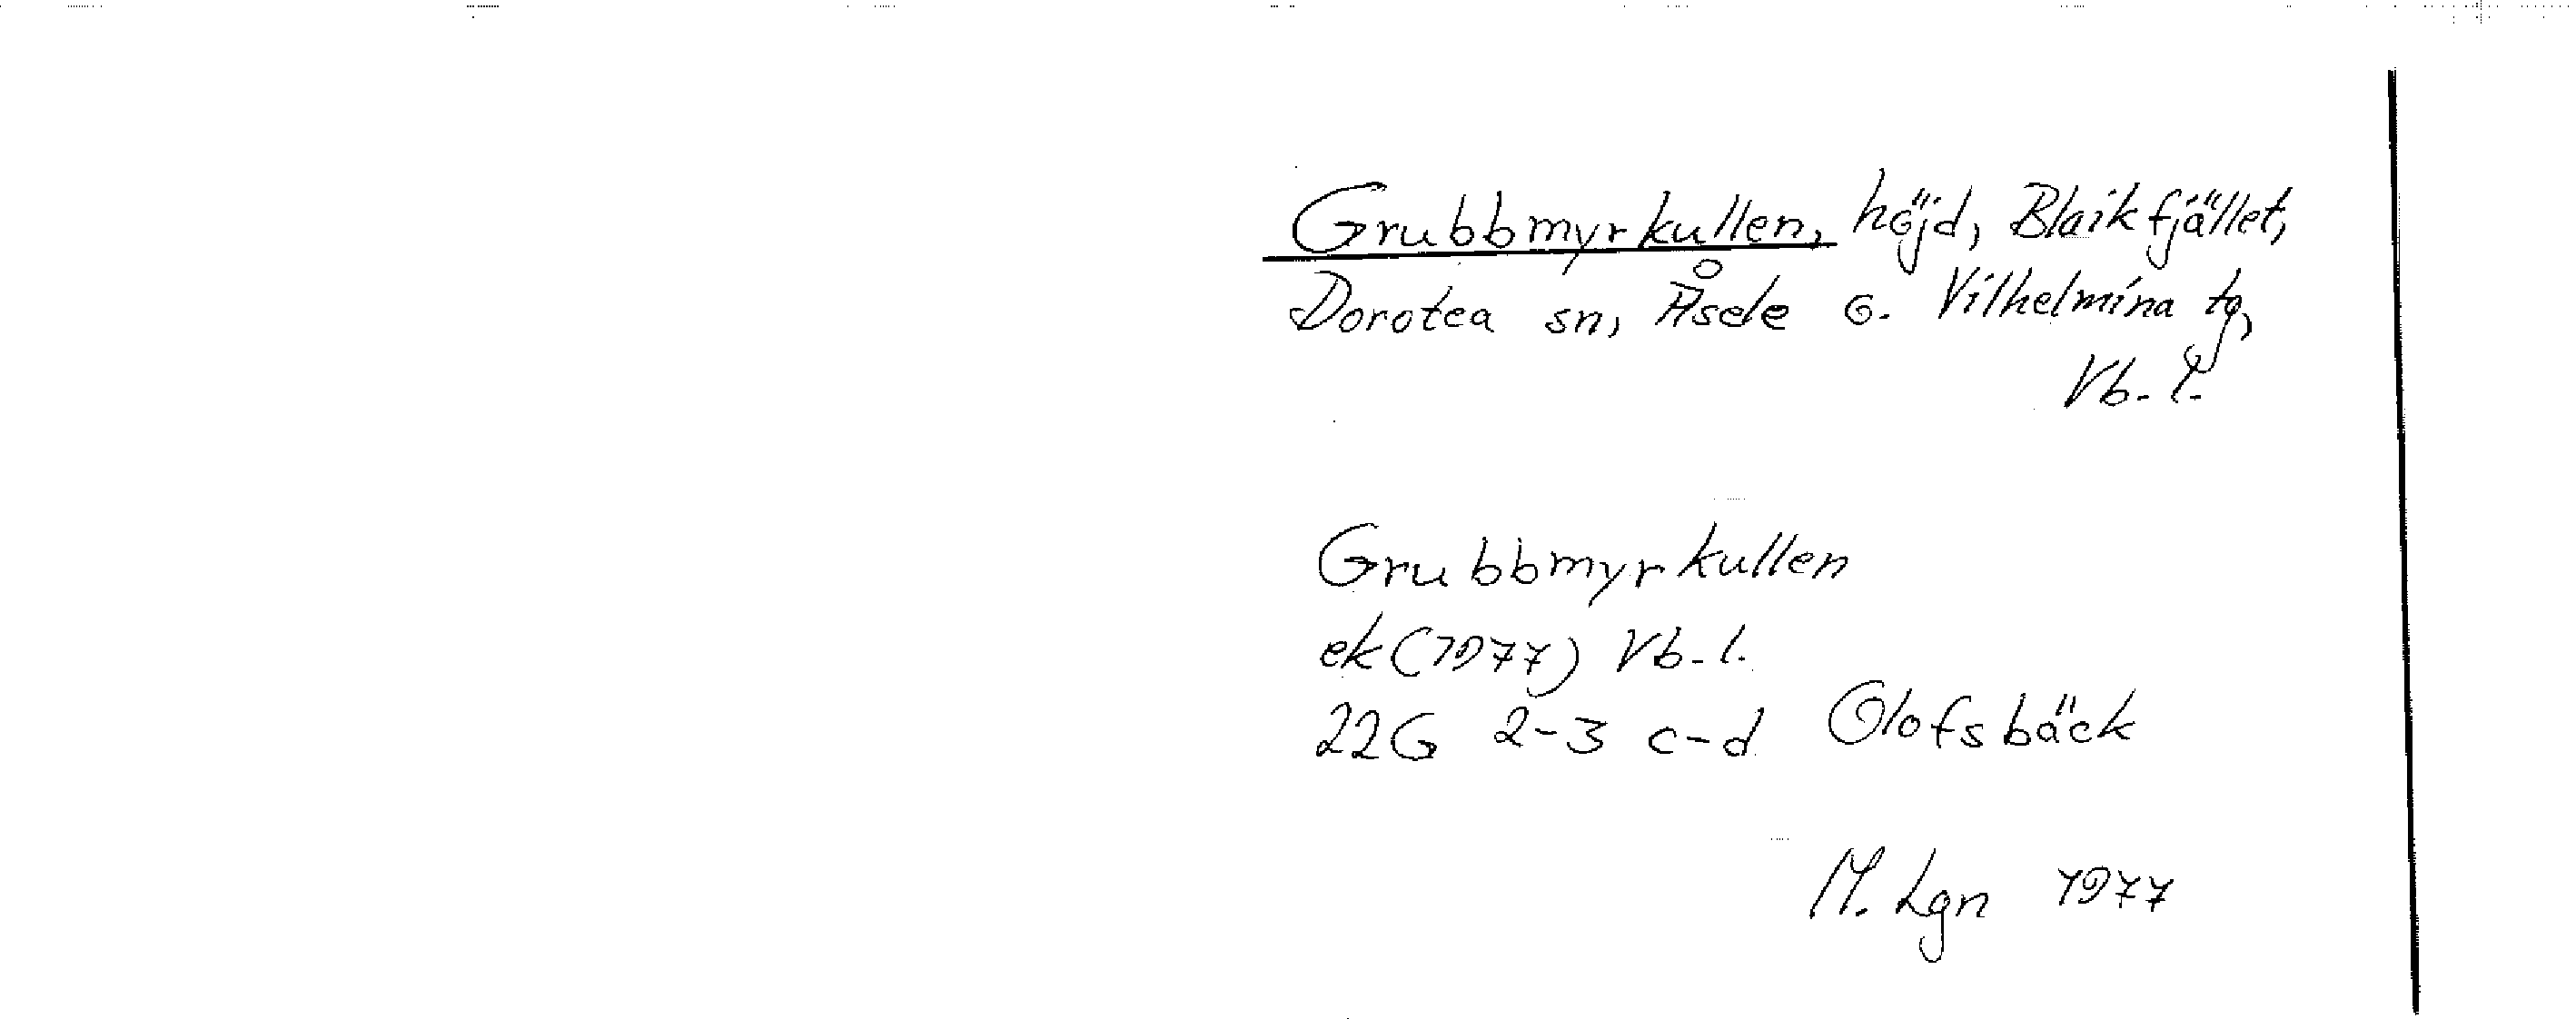 Grubbmyrkullen, höjd, Blaikfjället,
Dorotea sn, Åsele o. Vilhelmina tg,
Vb. l.
Grubbmyrkullen
ek (1977) Vb. l.
22G 2-3 c-d Olofsbäck
M. Lgn 1977